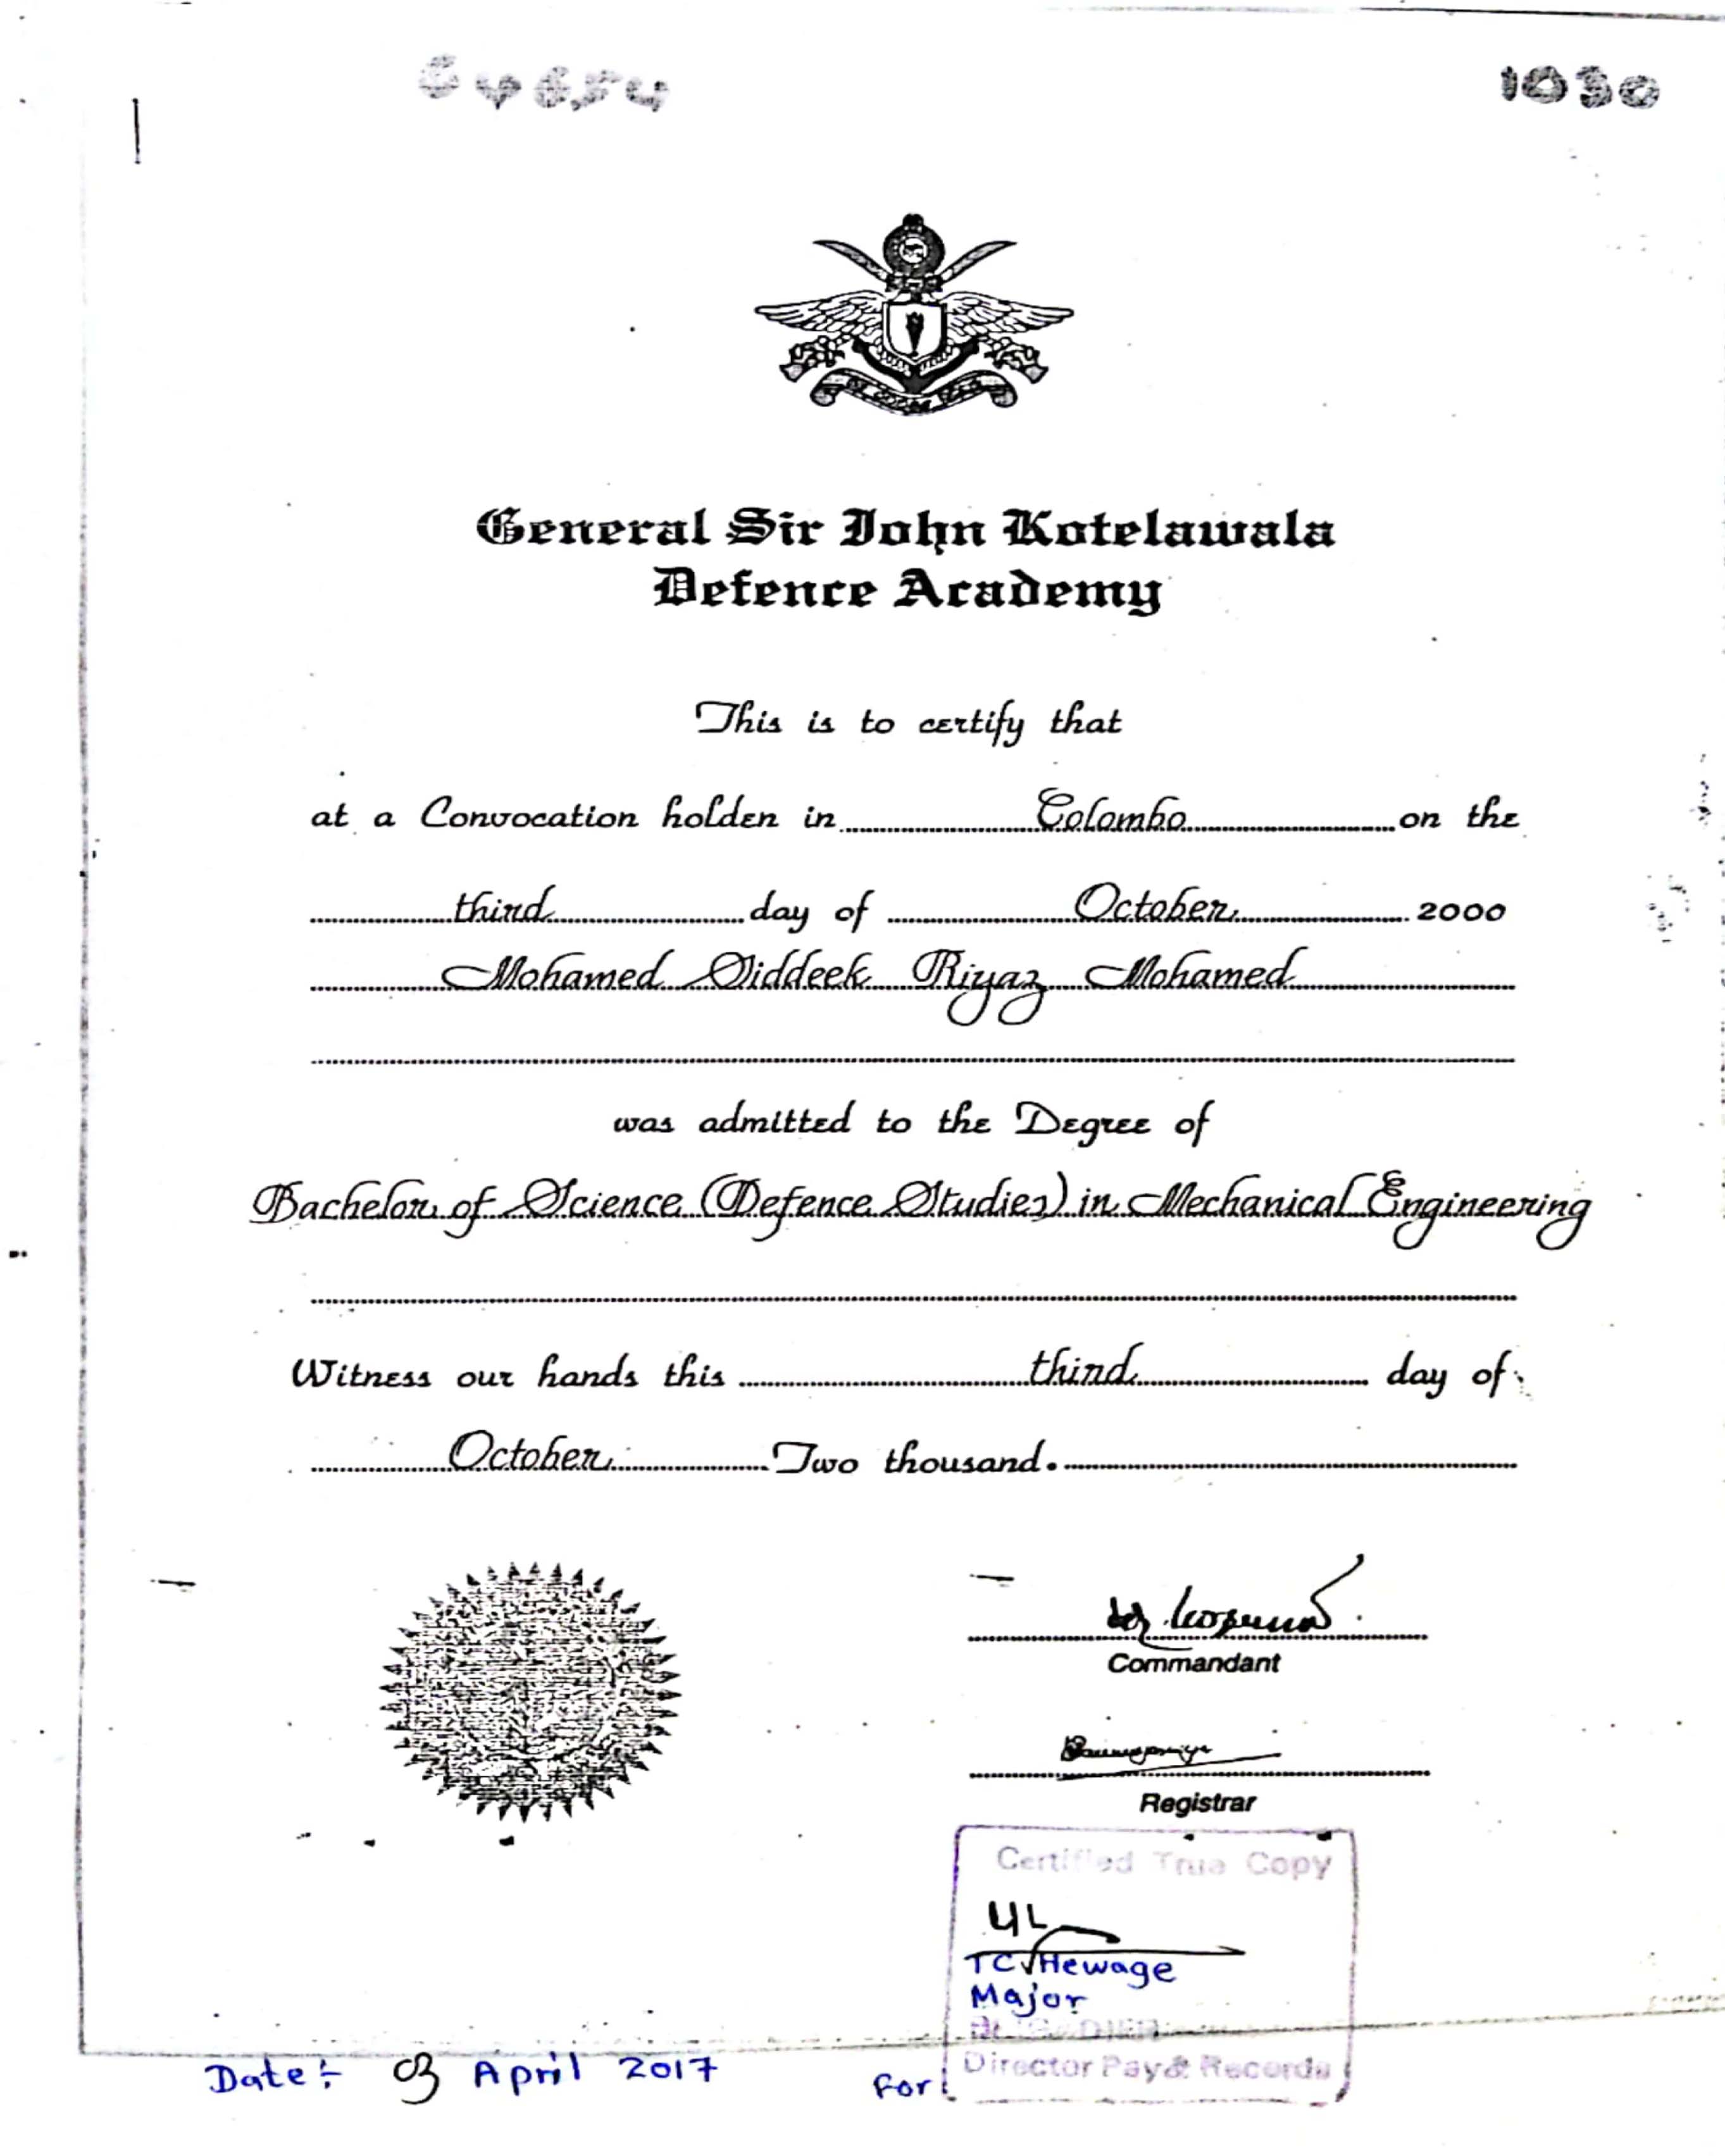 1030
General Sir John Kotelawala
Defence Academy
This is to certify that
at a Convocation holden in Colombo on the
third day of October 2000
Mohamed Siddeek Riyaz Mohamed
was admitted to the Degree of
Bachelor of Science (Defence Studies) in Mechanical Engineering
Witness our hands this third day of
October Two thousand.
Commandant
Registrar
Certified True Copy
TC Hewage
Major
BRIGADIER
Director Pay & Records
Date:- 03 April 2017
For: